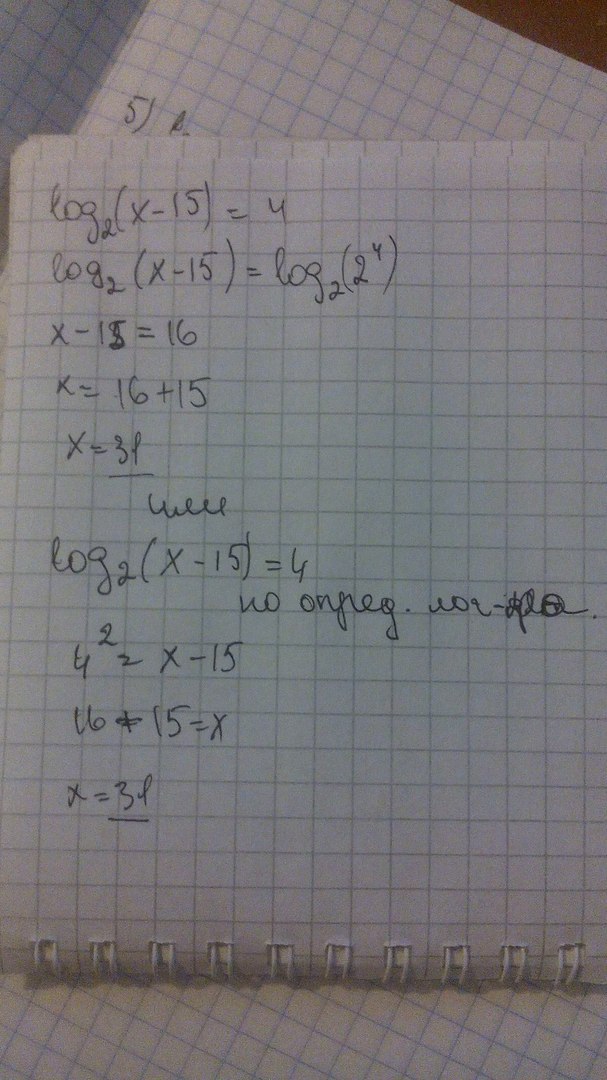 5)
log₂(x-15) = 4
log₂(x-15) = log₂(2⁴)
x-15 = 16
x = 16+15
x = 31
или
log₂(x-15) = 4
по опред. лог-ма.
4² = x-15
16+15=x
x = 31